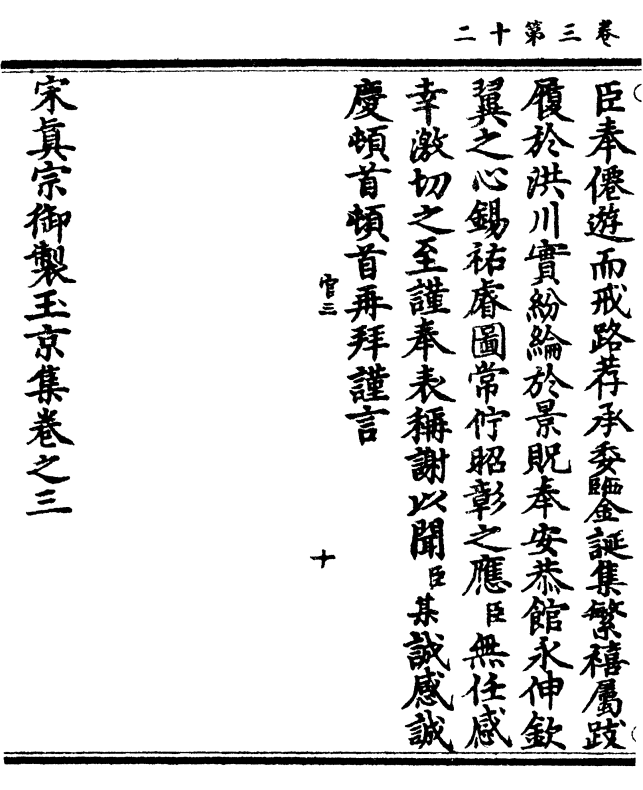 卷三第十二
臣奉僊遊而戒路荐承委臨金誕集繁禧屬跋
履於洪川實紛綸於景貺奉安恭館永伸欽
翼之心錫祐睿圖常佇昭彰之應臣無任感
幸激切之至謹奉表稱謝以聞臣某誠感誠
慶頓首頓首再拜謹言
官三
十
宋真宗御製玉京集卷之三